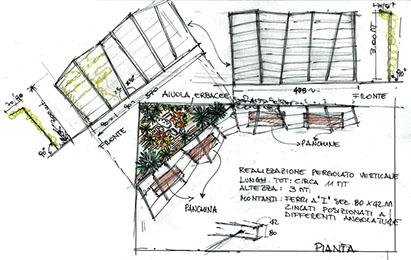 3.00 MT
FRONTE
FRONTE
AIUOLA ERBACEE
PANCHINE
PANCHINA
REALIZZAZIONE PERGOLATO VERTICALE
LUNGH. TOT: CIRCA 11 MT
ALTEZZA: 3 MT
MONTANTI: FERRI A "I" SEZ. 80 X 42 M
ZINCATI POSIZIONATI A
DIFFERENTI ANGOLATURE
42
80
PIANTA